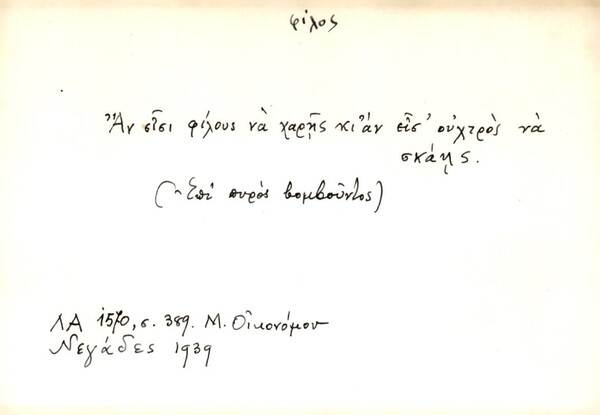 φίλος
Ἂν εἶσι φίλους νὰ χαρῇς κι' ἂν εἶσ' οὐχτρὸς νὰ
σκάῃς.
(Ἐπὶ πυρὸς βομβοῦντος)
ΛΑ 1570, σ. 389. Μ. Οἰκονόμου
Νεγάδες 1939